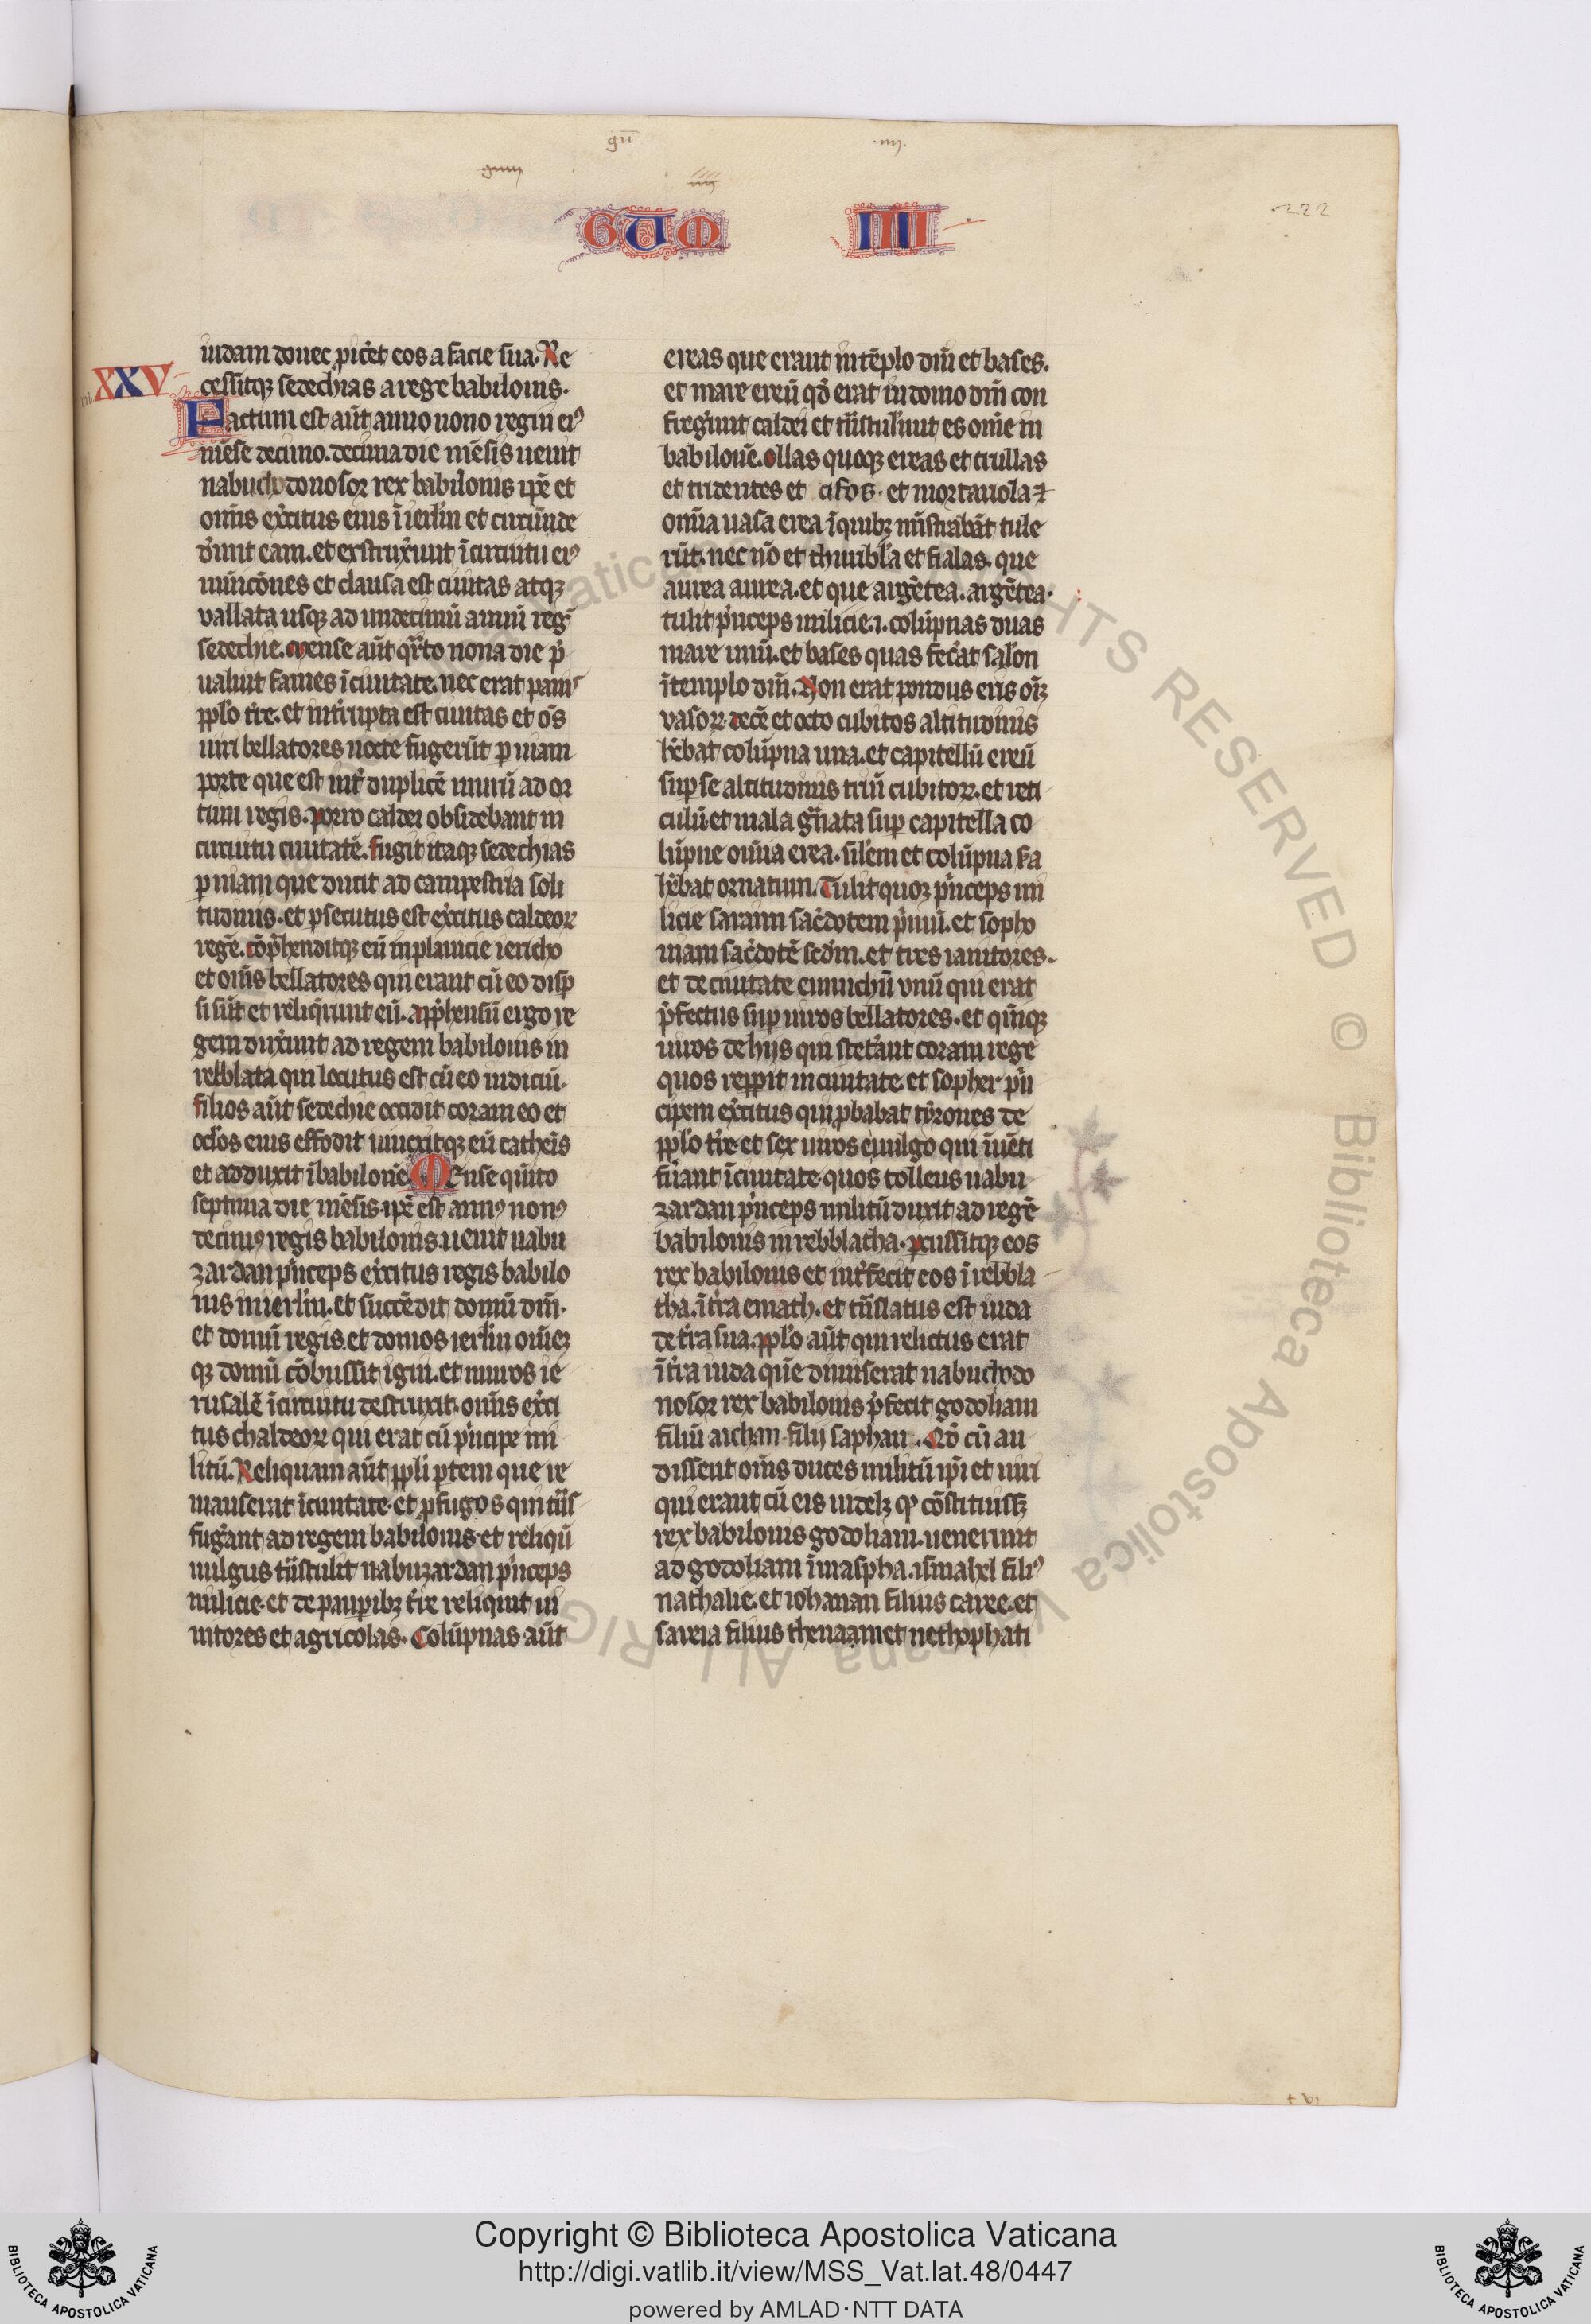 gu̅
.iiij.
GUM
IIII
222
XXV
iudam donec ꝓic̓et eos a facie sua. Re
cessitqꝫ sedechias a rege babilonis.
Factum est aut̅ anno nono regni eiꝰ
me̅se decimo. decima die me̅sis uenit
nabuchodonosor rex babilonis ip̅e et
om̅is ex̓citus eius i̅ ierl̅m et circu̅de
d̓unt eam. et exstrux̓unt i̅ circuitu eiꝰ
munico̅nes et clausa est ciuitas atqꝫ
uallata usqꝫ ad undecimu̅ annu̅ reg̅
sedechie. Mense aut̅ qr̅to nona die p̓
ualuit fames i̅ ciuitate. nec erat panis
pplo̅ tr̅e. et int̓rupta est ciuitas et oe̅s
uiri bellatores nocte fugeru̅t ꝑ uiam
porte que est int̓ duplice̅ muru̅ ad or
tum regis. Porro caldei obsidebant in
circuitu ciuitate̅. Fugit itaqꝫ sedechias
ꝑ uiam que ducit ad campestria soli
tudinis. et ꝑsecutus est ex̓citus caldeoꝝ
rege̅. co̅p̓henditqꝫ eu̅ in planicie iericho
et om̅is bellatores qui erant cu̅ eo disꝑ
si su̅t et reliq̓runt eu̅. App̓hensu̅ ergo re
gem dux̓unt ad regem babilonis in
rebblata qui locutus est cu̅ eo iudiciu̅.
filios aut̅ sedechie occidit coram eo et
oclo̅s eius effodit uinxitqꝫ eu̅ cathenis
et adduxit i̅ babilone̅. Mense qui̅to
septima die me̅sis. ip̅e est annꝰ nonꝰ
decimꝰ regis babilonis. uenit nabu
zardan p̓nceps ex̓citus regis babilo
nis in ierl̅m. et succe̅dit domu̅ dn̅i.
et domu̅ regis. et domos ierl̅m omne̅
qꝫ domu̅ co̅bussit igni. et muros ie
rusale̅ i̅ circuitu destruxit. om̅is ex̓ci
tus chaldeoꝝ qui erat cu̅ p̓ncipe mi
litu̅. Reliquam aut̅ ppl̅i ꝑtem que re
manserat i̅ ciuitate. et ꝑfugos qui tn̅s
fug̓ant ad regem babilonis. et reliqu̅
uulgus tn̅stulit nabuzardan p̓nceps
milicie. et de pauꝑibꝫ tr̅e reliquit ui
nitores et agricolas. Colu̅pnas aut̅
ereas que erant in te̅plo dn̅i et bases.
et mare ereu̅ qd̅ erat in domo dn̅i con
freg̓unt caldei et tn̅stul̓unt es om̅e in
babilone̅. Ollas quoqꝫ ereas et trullas
et tridentes et cifos. et mortariola ⁊
om̅ia uasa erea i̅ quibꝫ mi̅straba̅t tule
ru̅t. nec no̅ et thuribla̅ et fialas. que
aurea aurea. et que arge̅tea. arge̅tea.
tulit p̓nceps milicie. i. colu̅pnas duas
mare unu̅. et bases quas fec̓at salo̅n
i̅ templo dn̅i. Non erat pondus eris oi̅ꝫ
uasoꝝ. dece̅ et octo cubitos altitudinis
he̅bat colu̅pna una. et capitellu̅ ereu̅
suꝑ se altitudinis triu̅ cubitoꝝ. et reti
culu̅. et mala g̅nata suꝑ capitella co
lu̅pne om̅ia erea. sile̅m et colu̅pna sc̅a
he̅bat ornatum. Tulit quoꝫ p̓nceps mi
licie saraim sac̓dotem p̓mu̅. et sopho
niam sac̓dote̅ scd̅m. et tres ianitores.
et de ciuitate eunuchu̅ unu̅ qui erat
p̓fectus suꝑ uiros bellatores. et qui̅qꝫ
uiros de hijs qui stet̓ant coram rege
quos repꝑit in ciuitate. et sopher p̓n
cipem ex̓citus qui ꝓbabat ty̅rones de
pplo̅ tr̅e. et sex uiros e̅ uulgo qui i̅ue̅ti
fu̓ant i̅ ciuitate. quos tollens nabu
zardan p̓nceps militu̅ duxit ad rege̅
babilonis in rebblatha. ꝑcussitqꝫ eos
rex babilonis et int̓fecit eos i̅ rebbla
tha. i̅ tr̅a emath. et tn̅slatus est iuda
de tr̅a sua. pplo̅ aut̅ qui relictus erat
i̅ tr̅a iuda que̅ dimiserat nabuchodo
nosor rex babilonis p̓fecit godoliam
filiu̅ aichan filij saphan. Qd̅ cu̅ au
dissent om̅is duces militu̅ ip̅i et uiri
qui erant cu̅ eis uidelꝫ ꝙ co̅stituissꝫ
rex babilonis godoliam. uenerunt
ad godoliam i̅ maspha. ismahel filiꝰ
nathalie. et iohanan filius caree. et
sareia filius thenaamet nethophati
Copyright © Biblioteca Apostolica Vaticana
http://digi.vatlib.it/view/MSS_Vat.lat.48/0447
powered by AMLAD·NTT DATA
BIBLIOTECA APOSTOLICA VATICANA
BIBLIOTECA APOSTOLICA VATICANA